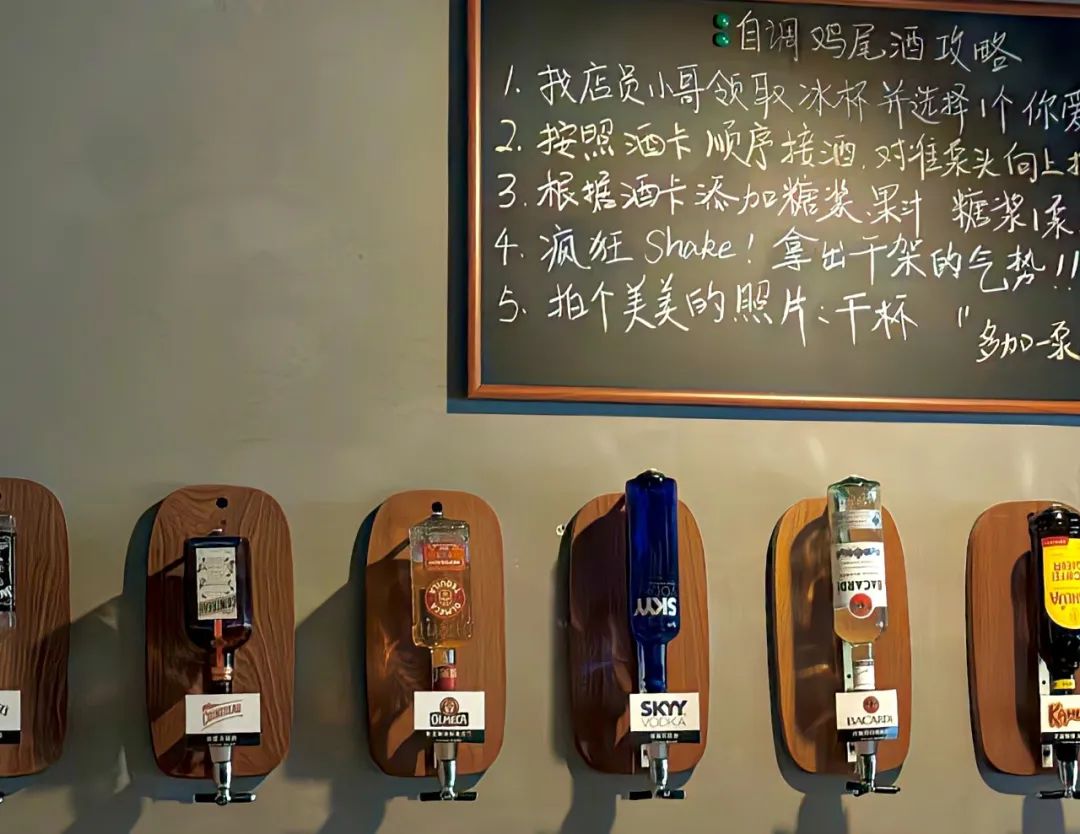 自调鸡尾酒攻略
1. 找店员小哥领取冰杯并选择1个你爱
2. 按照酒卡顺序接酒.对准泵头向上
3. 根据酒卡添加糖浆.果汁 糖浆1泵
4. 疯狂Shake！拿出干架的气势!!
5. 拍个美美的照片:干杯 "
多加一泵
COINTREAU
TEQUILA
OLMECA
SKYY
BACARDI
COINTREAU
OLMECA
SKYY
VODKA
BACARDI